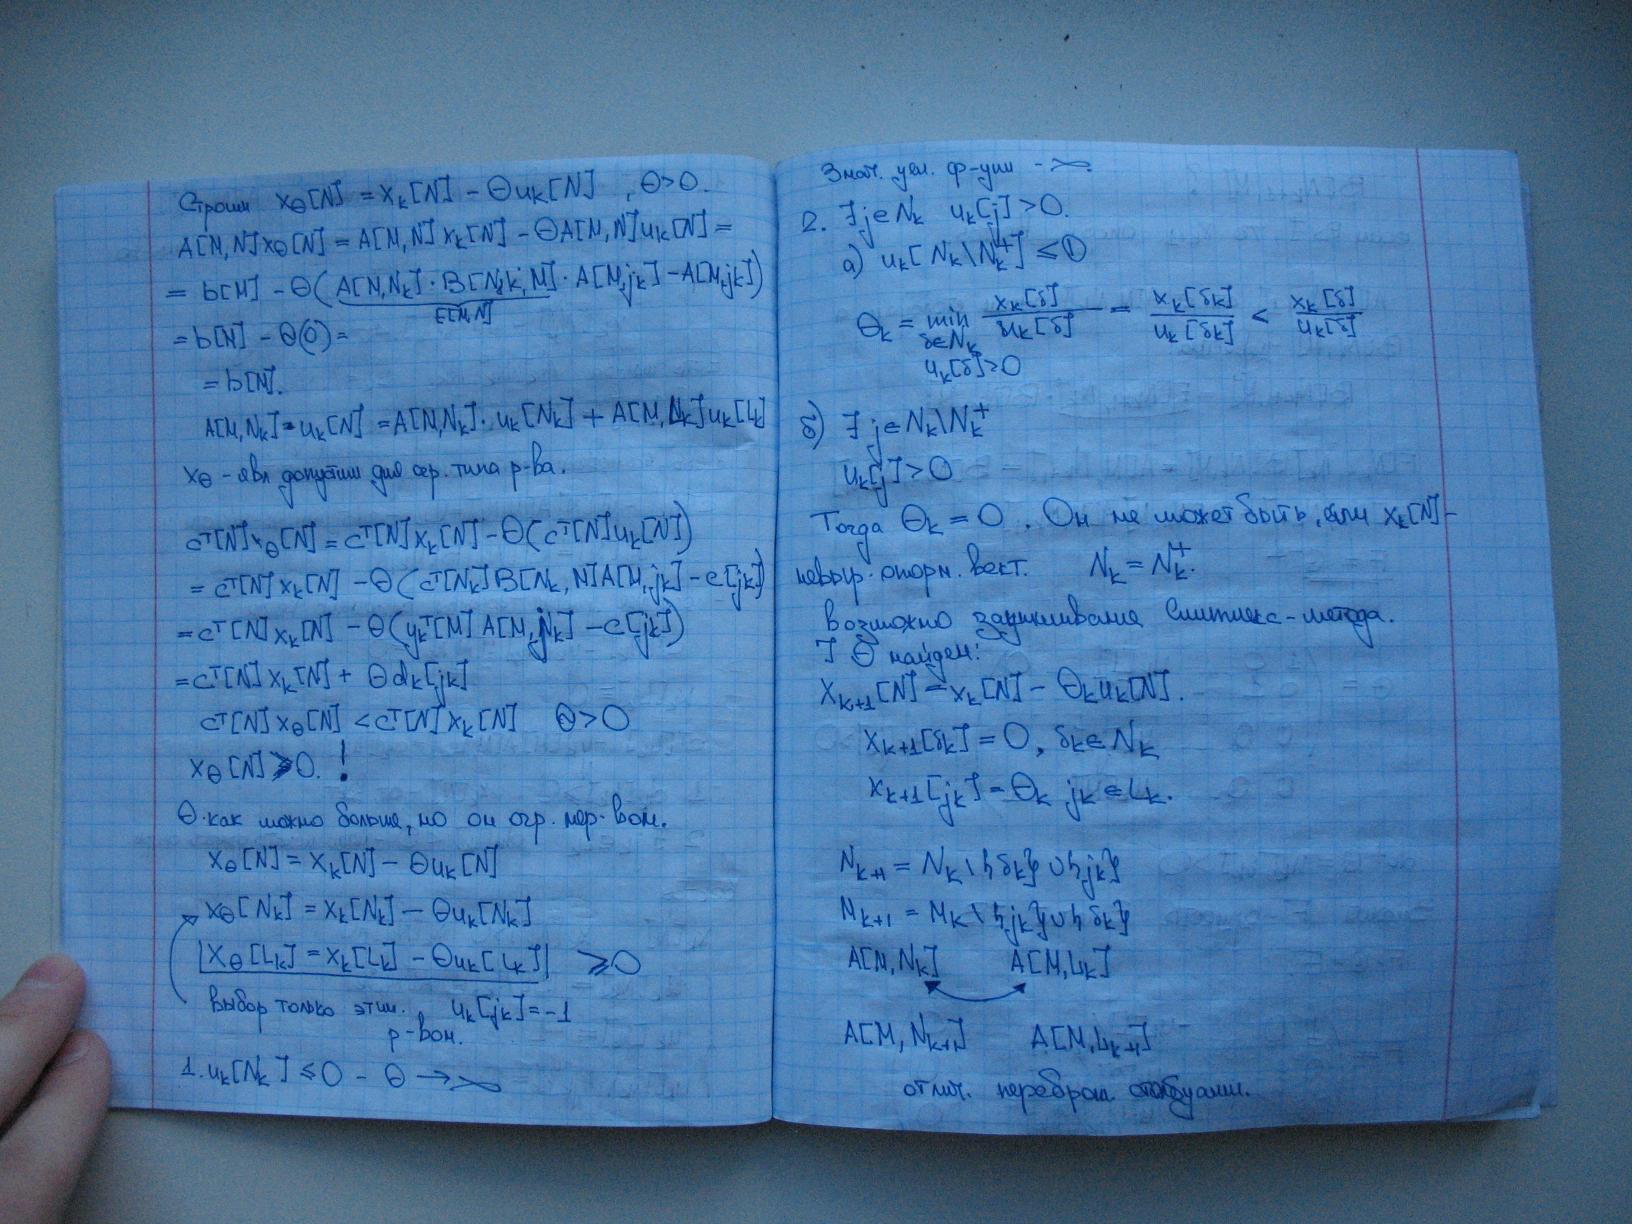 Строим x_θ[N] = x_k[N] − θu_k[N] , θ>0.
A[M,N]x_θ[N] = A[M,N]x_k[N] − θA[M,N]u_k[N] =
= b[M] − θ(A[M,N_k]·B[N_k,M]·A[M,j_k]−A[M,j_k])
E[M,N]
= b[N] − θ(0) =
= b[N].
A[M,N_k]·u_k[N] = A[M,N_k]·u_k[N_k] + A[M,L_k]u_k[L_k]
x_θ − явл допустим для огр. типа р-ва.
c^T[N]x_θ[N] = c^T[N]x_k[N] − θ(c^T[N]u_k[N])
= c^T[N]x_k[N] − θ(c^T[N_k]B[N_k,N]A[M,j_k] − c[j_k])
= c^T[N]x_k[N] − θ(y_k^T[M]A[M,j_k] − c[j_k])
= c^T[N]x_k[N] + θd_k[j_k]
c^T[N]x_θ[N] < c^T[N]x_k[N] θ>0
x_θ[N] ≥ 0. !
θ как можно больше, но он огр. нер-вом.
x_θ[N] = x_k[N] − θu_k[N]
x_θ[N_k] = x_k[N_k] − θu_k[N_k]
|x_θ[L_k] = x_k[L_k] − θu_k[L_k]| ≥0
выбор только этим. u_k[j_k] = −1
р-вом.
1. u_k[N_k] ≤ 0 − θ → ∞
Знач. цел. ф-ции −∞.
2. ∃ j∈N_k u_k[j]>0.
а) u_k[N_k\N_k^+] ≤ 0
θ_k = min x_k[δ]/u_k[δ] = x_k[δ_k]/u_k[δ_k] < x_k[δ]/u_k[δ]
δ∈N_k
u_k[δ]>0
б) ∃ j∈N_k\N_k^+
u_k[j]>0
Тогда θ_k = 0. Он не может быть, если x_k[N]−
невыр. опорн. вект. N_k = N_k^+.
возможно зацикливание симплекс-метода.
] θ найден:
x_{k+1}[N] = x_k[N] − θ_k u_k[N].
x_{k+1}[δ_k] = 0, δ_k∈N_k
x_{k+1}[j_k] = θ_k j_k∈L_k.
N_{k+1} = N_k\{δ_k}∪{j_k}
M_{k+1} = M_k\{j_k}∪{δ_k}
A[M,N_k] A[M,L_k]
A[M,N_{k+1}] A[M,L_{k+1}]
отлич. столбцами.